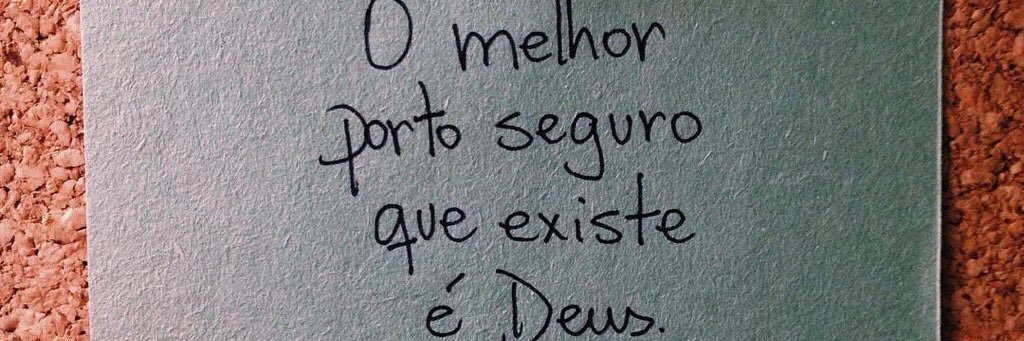 O melhor
porto seguro
que existe
é Deus.